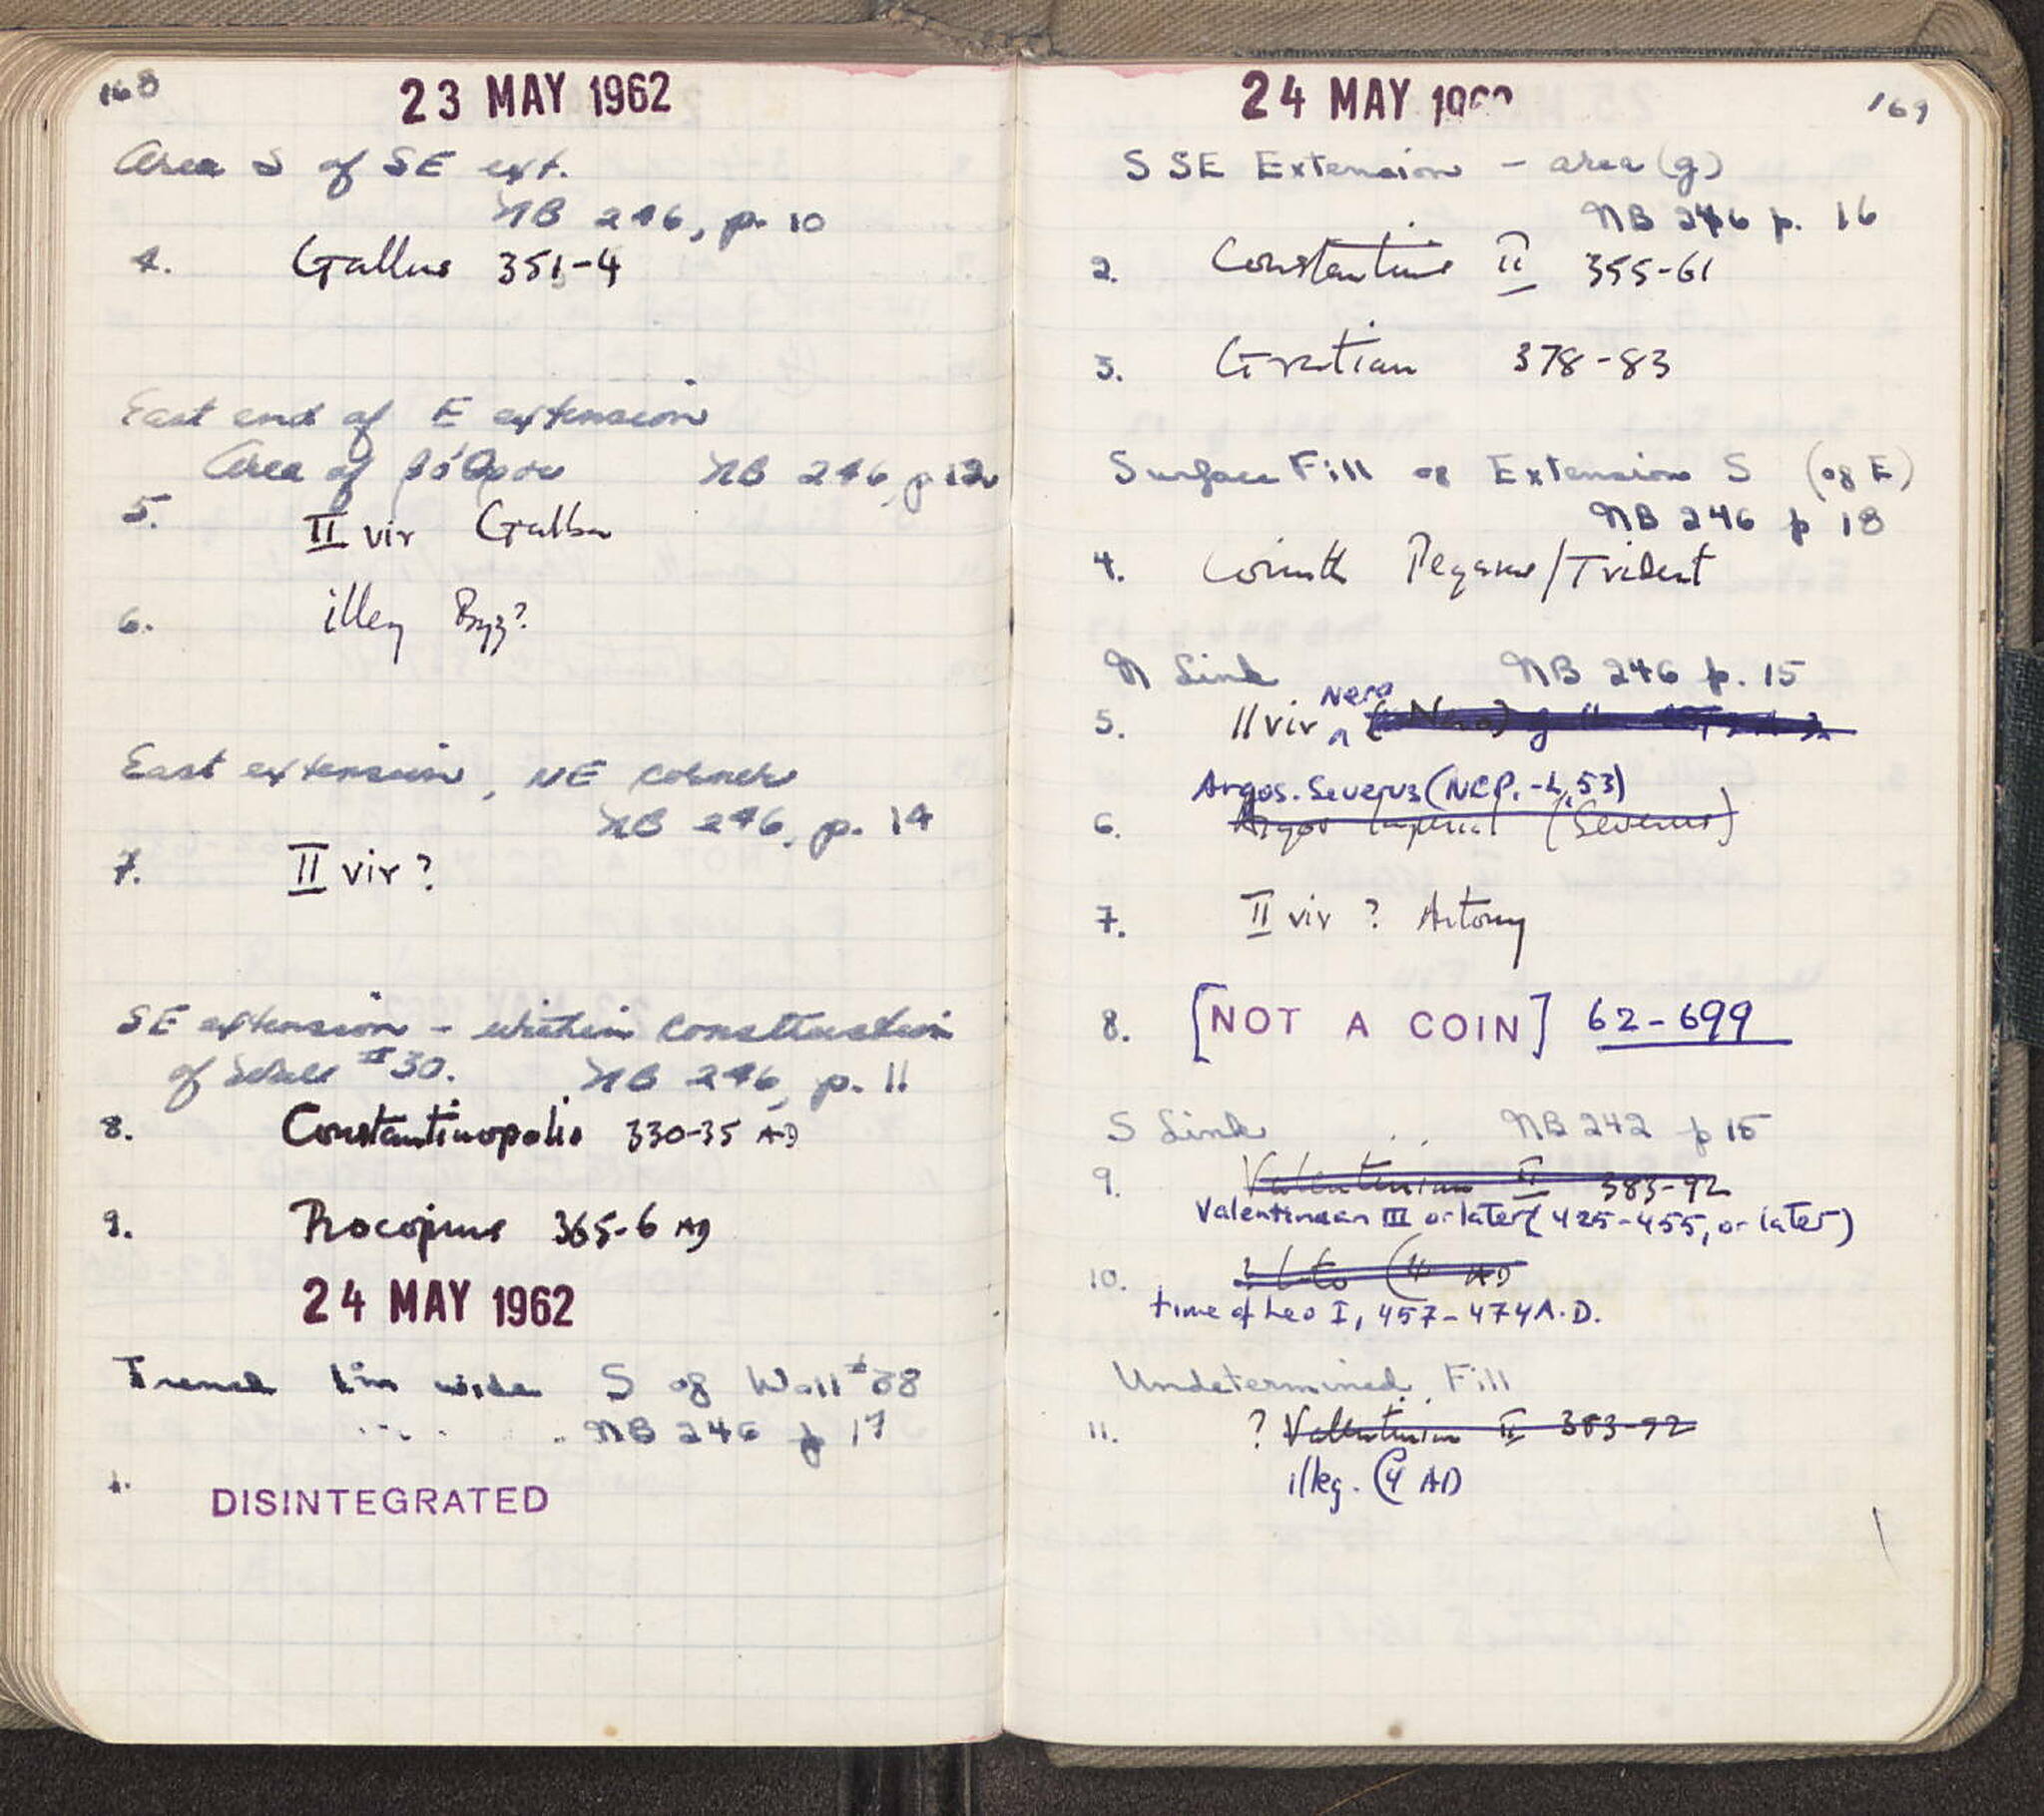 168
23 MAY 1962
Area S of SE ext.
NB 246, p. 10
4. Gallus 351-4
East end of E extension
Area of βόθρου NB 246, p 12
5. II vir Galba
6. illeg Byz?
East extension, NE corner
NB 246, p. 14
7. II vir?
SE extension - within construction
of Wall #30. NB 246, p. 11
8. Constantinopolis 330-35 AD
9. Procopius 365-6 AD
24 MAY 1962
Trench 1m wide S of Wall #38
NB 246 p 17
1. DISINTEGRATED
169
24 MAY 1962
S SE Extension - area (g)
NB 246 p. 16
2. Constantius II 355-61
3. Gratian 378-83
Surface Fill of Extension S (of E)
NB 246 p 18
4. Corinth Pegasus/Trident
N Link NB 246 p. 15
Nero
5. II vir ^ (Nero)
Argos. Severus (NCP. -L, 53)
6. Argos Imperial (Severus)
7. II vir ? Antony
8. [NOT A COIN] 62-699
S Link NB 242 p 15
9. Valentinian II 383-92
Valentinian III or later (425-455, or later)
10. AD
time of Leo I, 457-474 A.D.
Undetermined Fill
11. ? Valentinian II 383-92
illeg. C4 AD